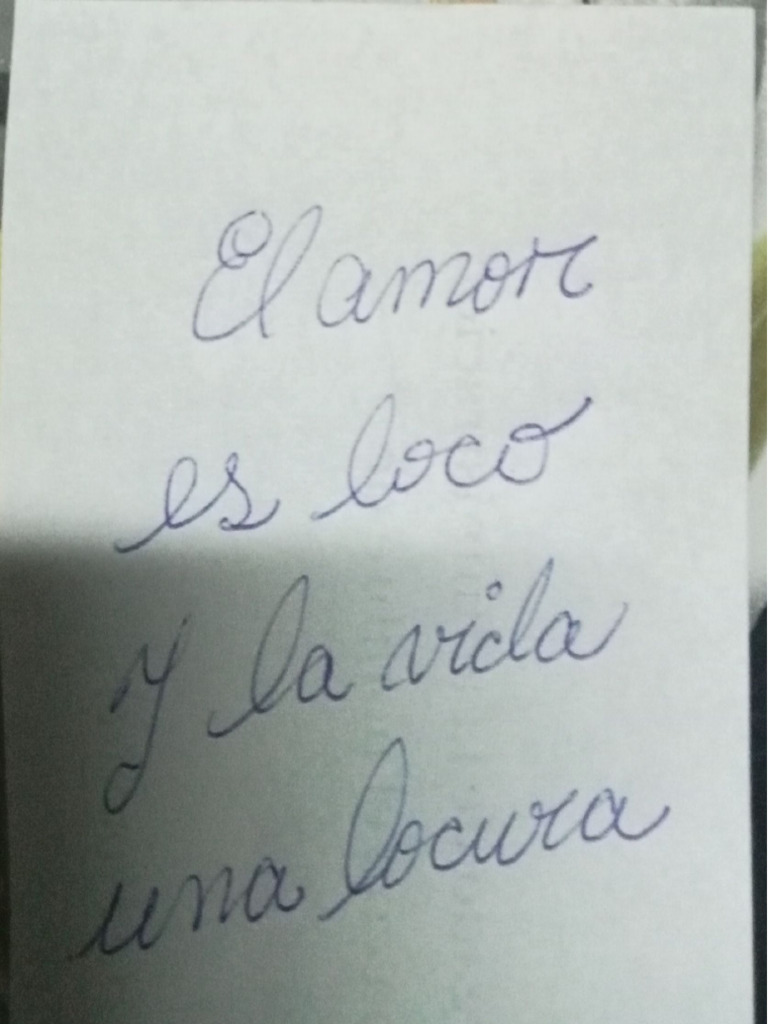 El amor
es loco
y la vida
una locura